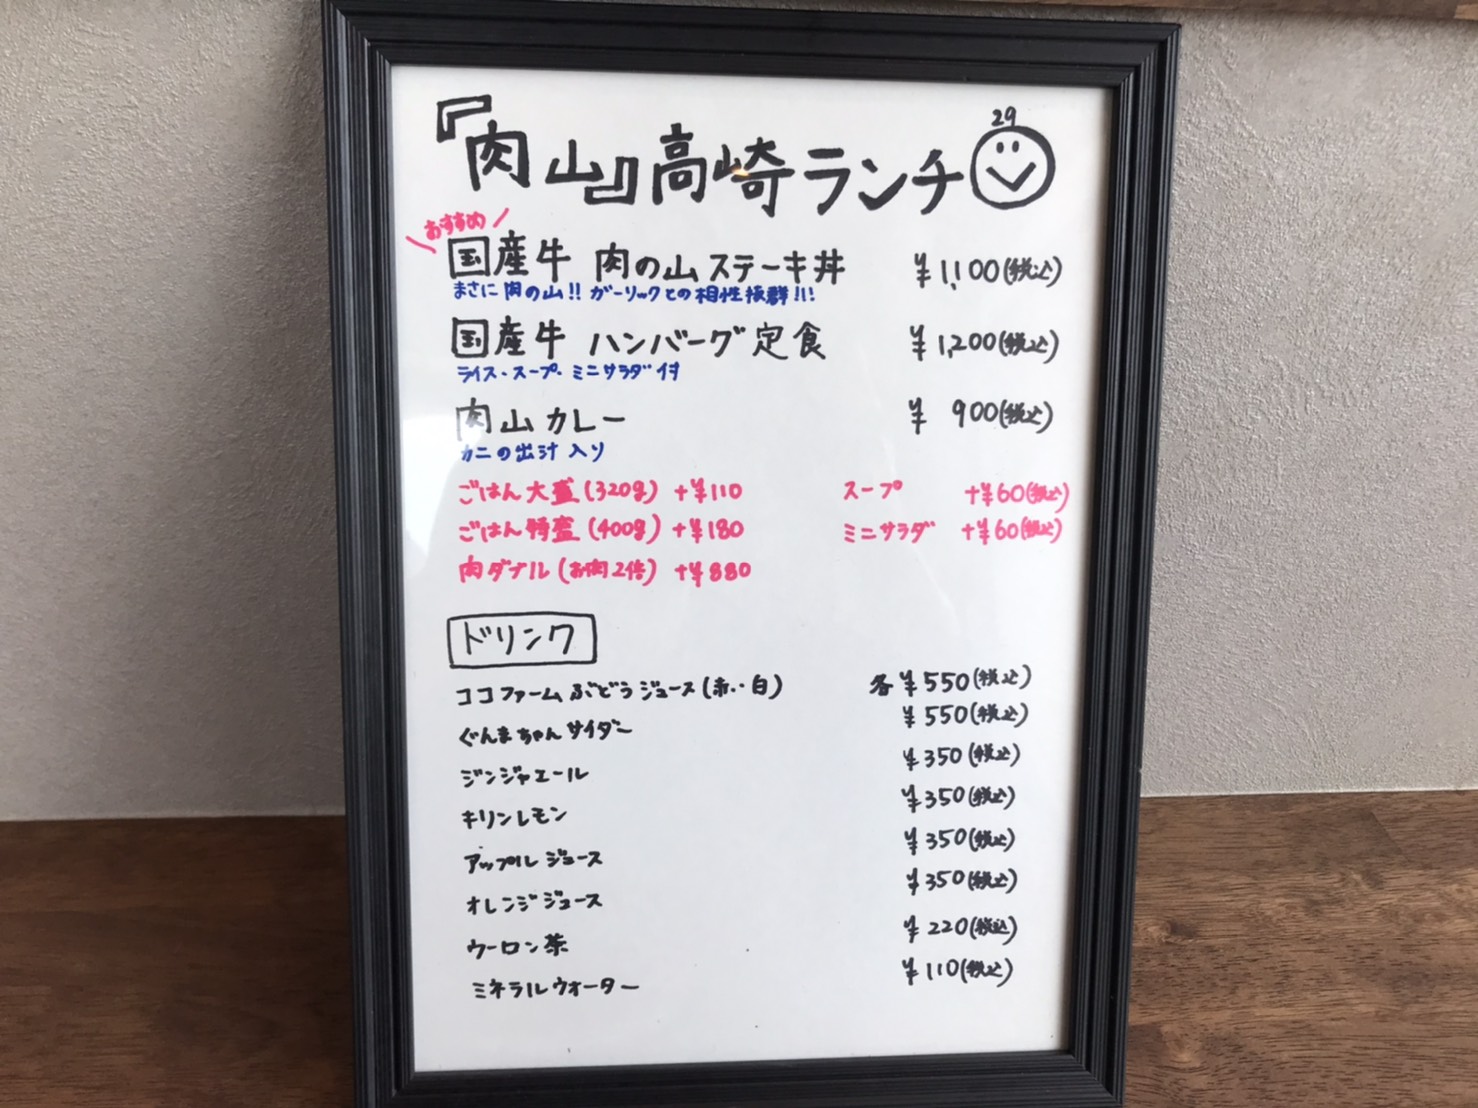 『肉山』高崎ランチ
29
おすすめ
国産牛 肉の山ステーキ丼 ¥1,100(税込)
まさに肉の山!! ガーリックとの相性抜群!!!
国産牛 ハンバーグ定食 ¥1,200(税込)
ライス・スープ・ミニサラダ付
肉山カレー ¥900(税込)
カニの出汁入り
ごはん大盛(320g) +¥110 スープ +¥60(税込)
ごはん特盛(400g) +¥180 ミニサラダ +¥60(税込)
肉ダブル(お肉2倍) +¥880
ドリンク
ココファームぶどうジュース(赤・白) 各¥550(税込)
ぐんまちゃんサイダー ¥550(税込)
ジンジャエール ¥350(税込)
キリンレモン ¥350(税込)
アップルジュース ¥350(税込)
オレンジジュース ¥350(税込)
ウーロン茶 ¥220(税込)
ミネラルウォーター ¥110(税込)